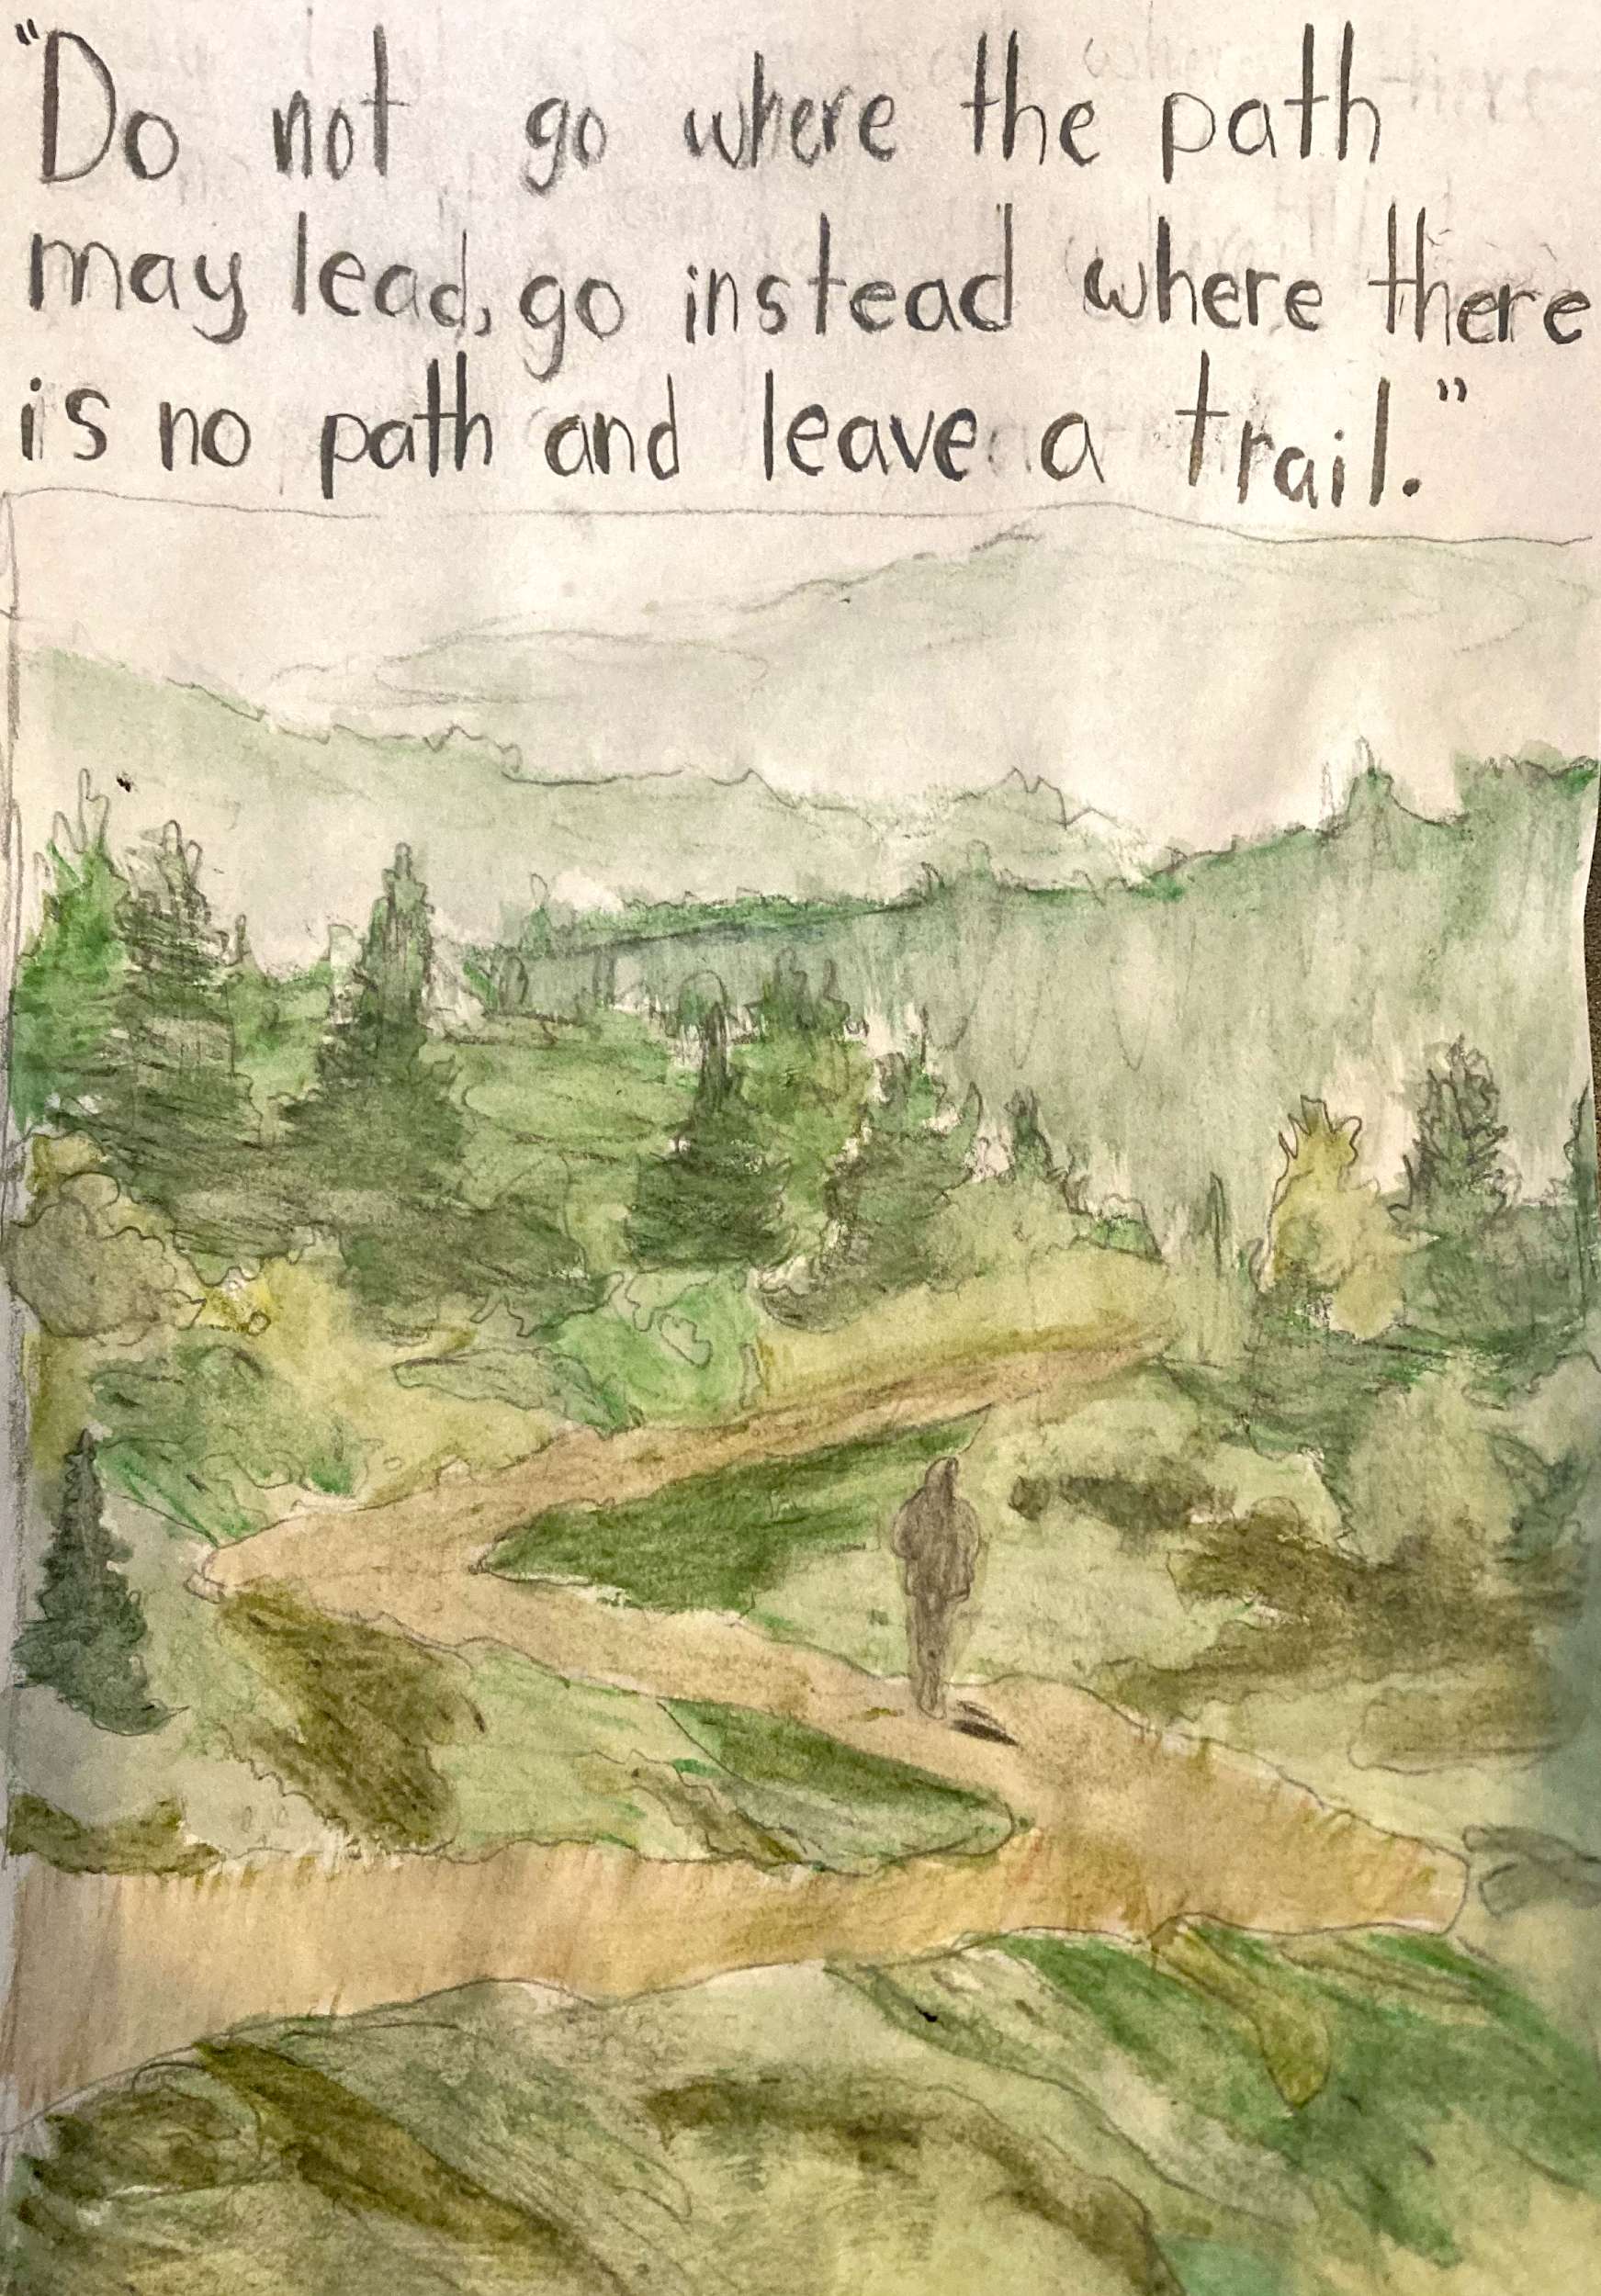 "Do not go where the path
may lead, go instead where there
is no path and leave a trail."